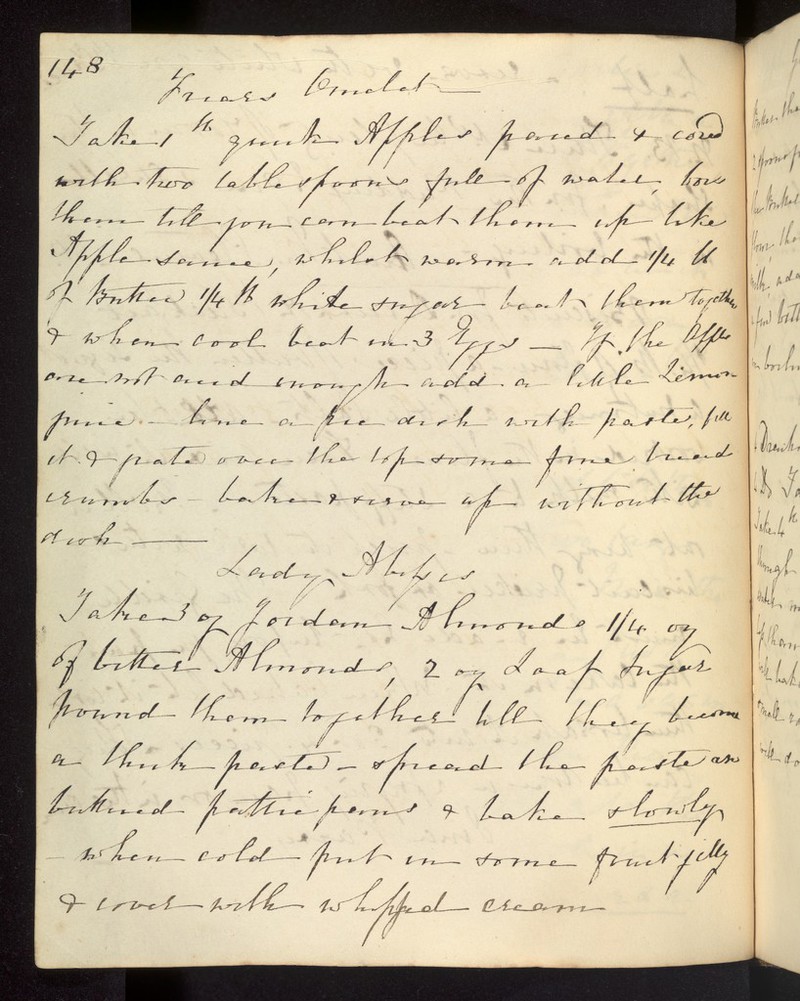 148
Friars Omelet
Take 1 lb quick Apples pared & cored
with two table spoons full of water, boil
them till you can beat them up like
Apple sauce, whilst warm add 1/4 lb
of Butter 1/4 lb white sugar beat them together
& when cool beat in 3 Eggs — If the Apples
are not acid enough add a little Lemon
juice – line a pie dish with paste, fill
it & grate over the top some fine bread
crumbs – bake & serve up without the
dish —
Lady Abbess
Take 3 oz Jordan Almonds 1/4 oz
of bitter Almonds, 2 oz Loaf Sugar
Pound them together till they become
a thick paste – spread the paste on
buttered pattie pans & bake slowly
– when cold put in some fruit jelly
& cover with whipped cream